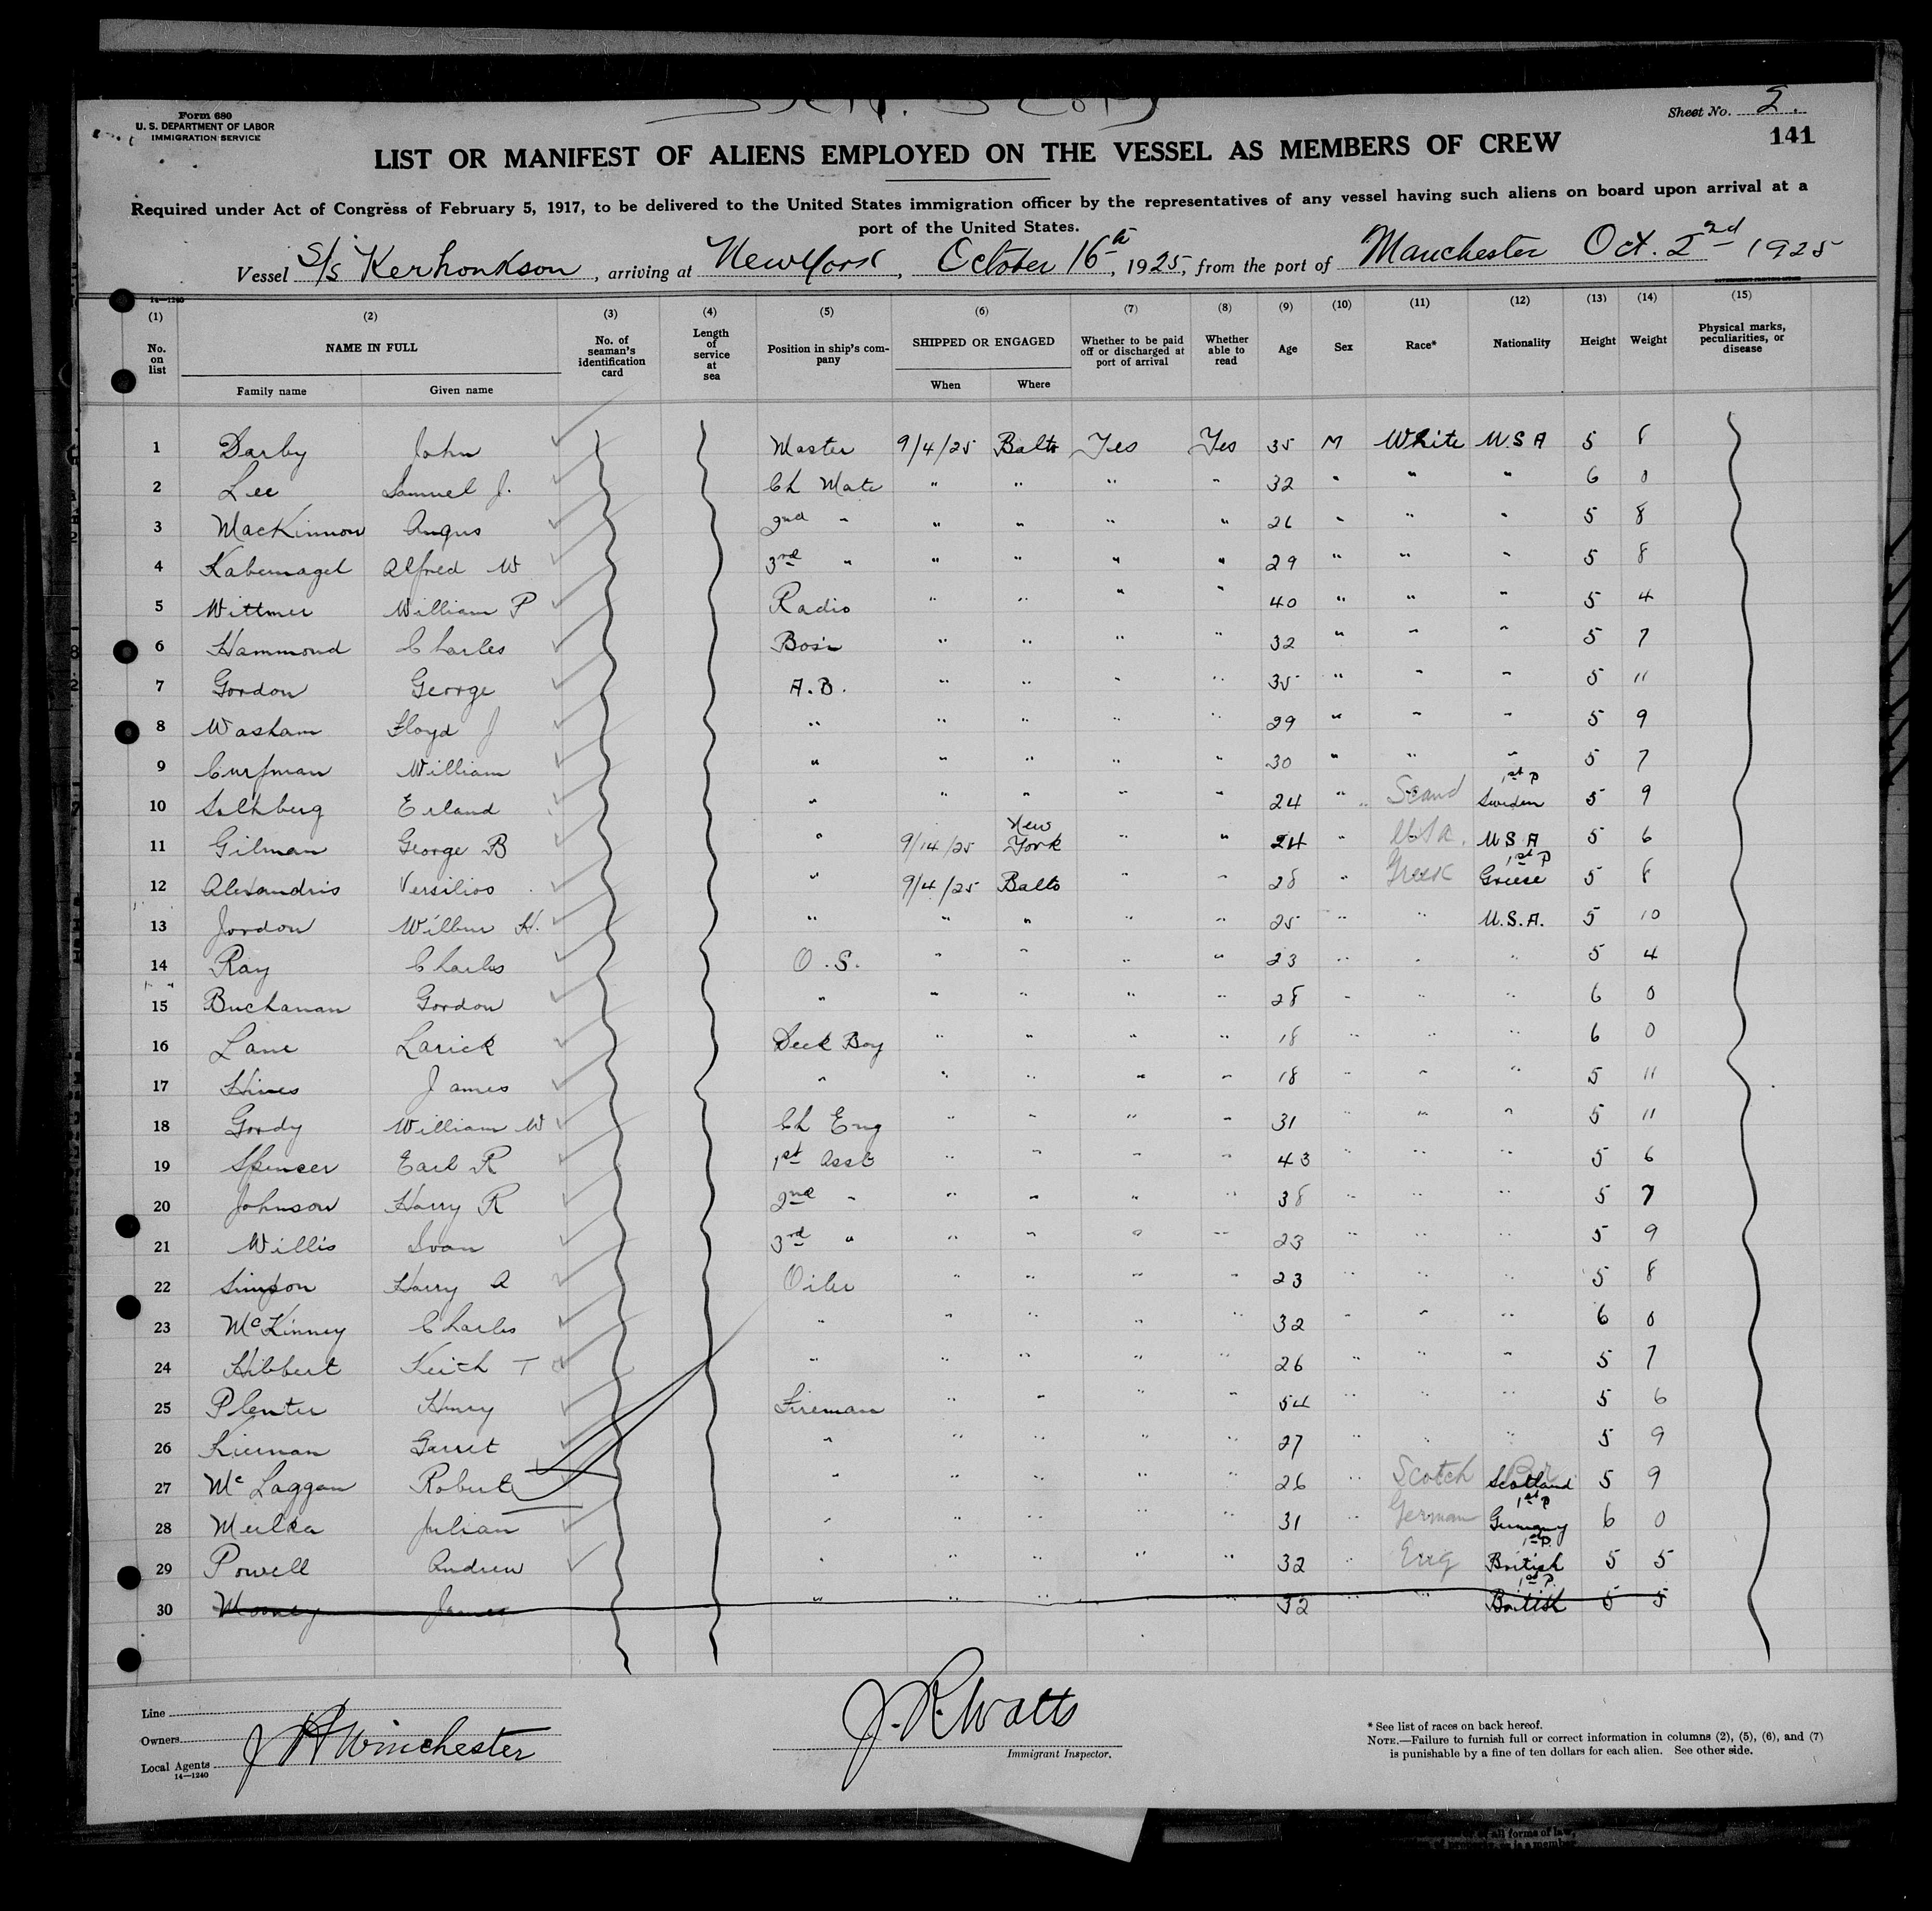 Form 680
U. S. DEPARTMENT OF LABOR
IMMIGRATION SERVICE
Sheet No. 2.
141
LIST OR MANIFEST OF ALIENS EMPLOYED ON THE VESSEL AS MEMBERS OF CREW
Required under Act of Congress of February 5, 1917, to be delivered to the United States immigration officer by the representatives of any vessel having such aliens on board upon arrival at a
port of the United States.
Vessel S/S Kerhonkson, arriving at New York, October 16th, 1925, from the port of Manchester Oct. 2nd 1925
14—1240
(1) (2) (3) (4) (5) (6) (7) (8) (9) (10) (11) (12) (13) (14) (15)
No. on list NAME IN FULL Family name Given name No. of seaman's identification card Length of service at sea Position in ship's company SHIPPED OR ENGAGED When Where Whether to be paid off or discharged at port of arrival Whether able to read Age Sex Race* Nationality Height Weight Physical marks, peculiarities, or disease
1 Darby John Master 9/4/25 Balto Yes Yes 35 M White U.S A 5 8
2 Lee Samuel J. Ch Mate " " " " 32 " " " 6 0
3 MacKinnon Angus 2nd " " " " " 26 " " " 5 8
4 Kabernagel Alfred W 3rd " " " " " 29 " " " 5 8
5 Wittmer William P Radio " " " " 40 " " " 5 4
6 Hammond Charles Bosn " " " " 32 " " " 5 7
7 Gordon George A.B. " " " " 35 " " " 5 11
8 Washam Floyd J " " " " " 29 " " " 5 9
9 Curfman William " " " " " 30 " " " 5 7
10 Erland " " " " " 24 " Scand 1st P Sweden 5 9
11 Gilman George B " 9/14/25 New York " " 24 " USA. U S A 5 6
12 Alexandris Versilios " 9/4/25 Balto " " 28 " Greek 1st P Greese 5 8
13 Jordon Wilbur H. " " " " " 25 " " U.S.A. 5 10
14 Ray Charles O.S. " " " " 23 " " " 5 4
15 Buchanan Gordon " " " " " 28 " " " 6 0
16 Lane Larick Deck Boy " " " " 18 " " " 6 0
17 Hines James " " " " " 18 " " " 5 11
18 Gordy William W Ch Eng " " " " 31 " " " 5 11
19 Spencer Earl R 1st Asst " " " " 43 " " " 5 6
20 Johnson Harry R 2nd " " " " " 38 " " " 5 7
21 Willis Ivan 3rd " " " " " 23 " " " 5 9
22 Simpson Harry A Oiler " " " " 23 " " " 5 8
23 McKinney Charles " " " " " 32 " " " 6 0
24 Hibbert Keith T " " " " " 26 " " " 5 7
25 Plenter Henry Fireman " " " " 54 " " " 5 6
26 Kiernan Garret " " " " " 27 " " " 5 9
27 McLaggan Robert " " " " " 26 " Scotch Br Scotland 5 9
28 Meilka Julian " " " " " 31 " German 1st P Germany 6 0
29 Powell Andrew " " " " " 32 " Eng 1st P. British 5 5
30 Mooney James " " " " " 32 " " 1st P. British 5 5
Line
Owners
Local Agents J H Winchester
14—1240
J. R. Watts
Immigrant Inspector.
* See list of races on back hereof.
NOTE.—Failure to furnish full or correct information in columns (2), (5), (6), and (7)
is punishable by a fine of ten dollars for each alien. See other side.